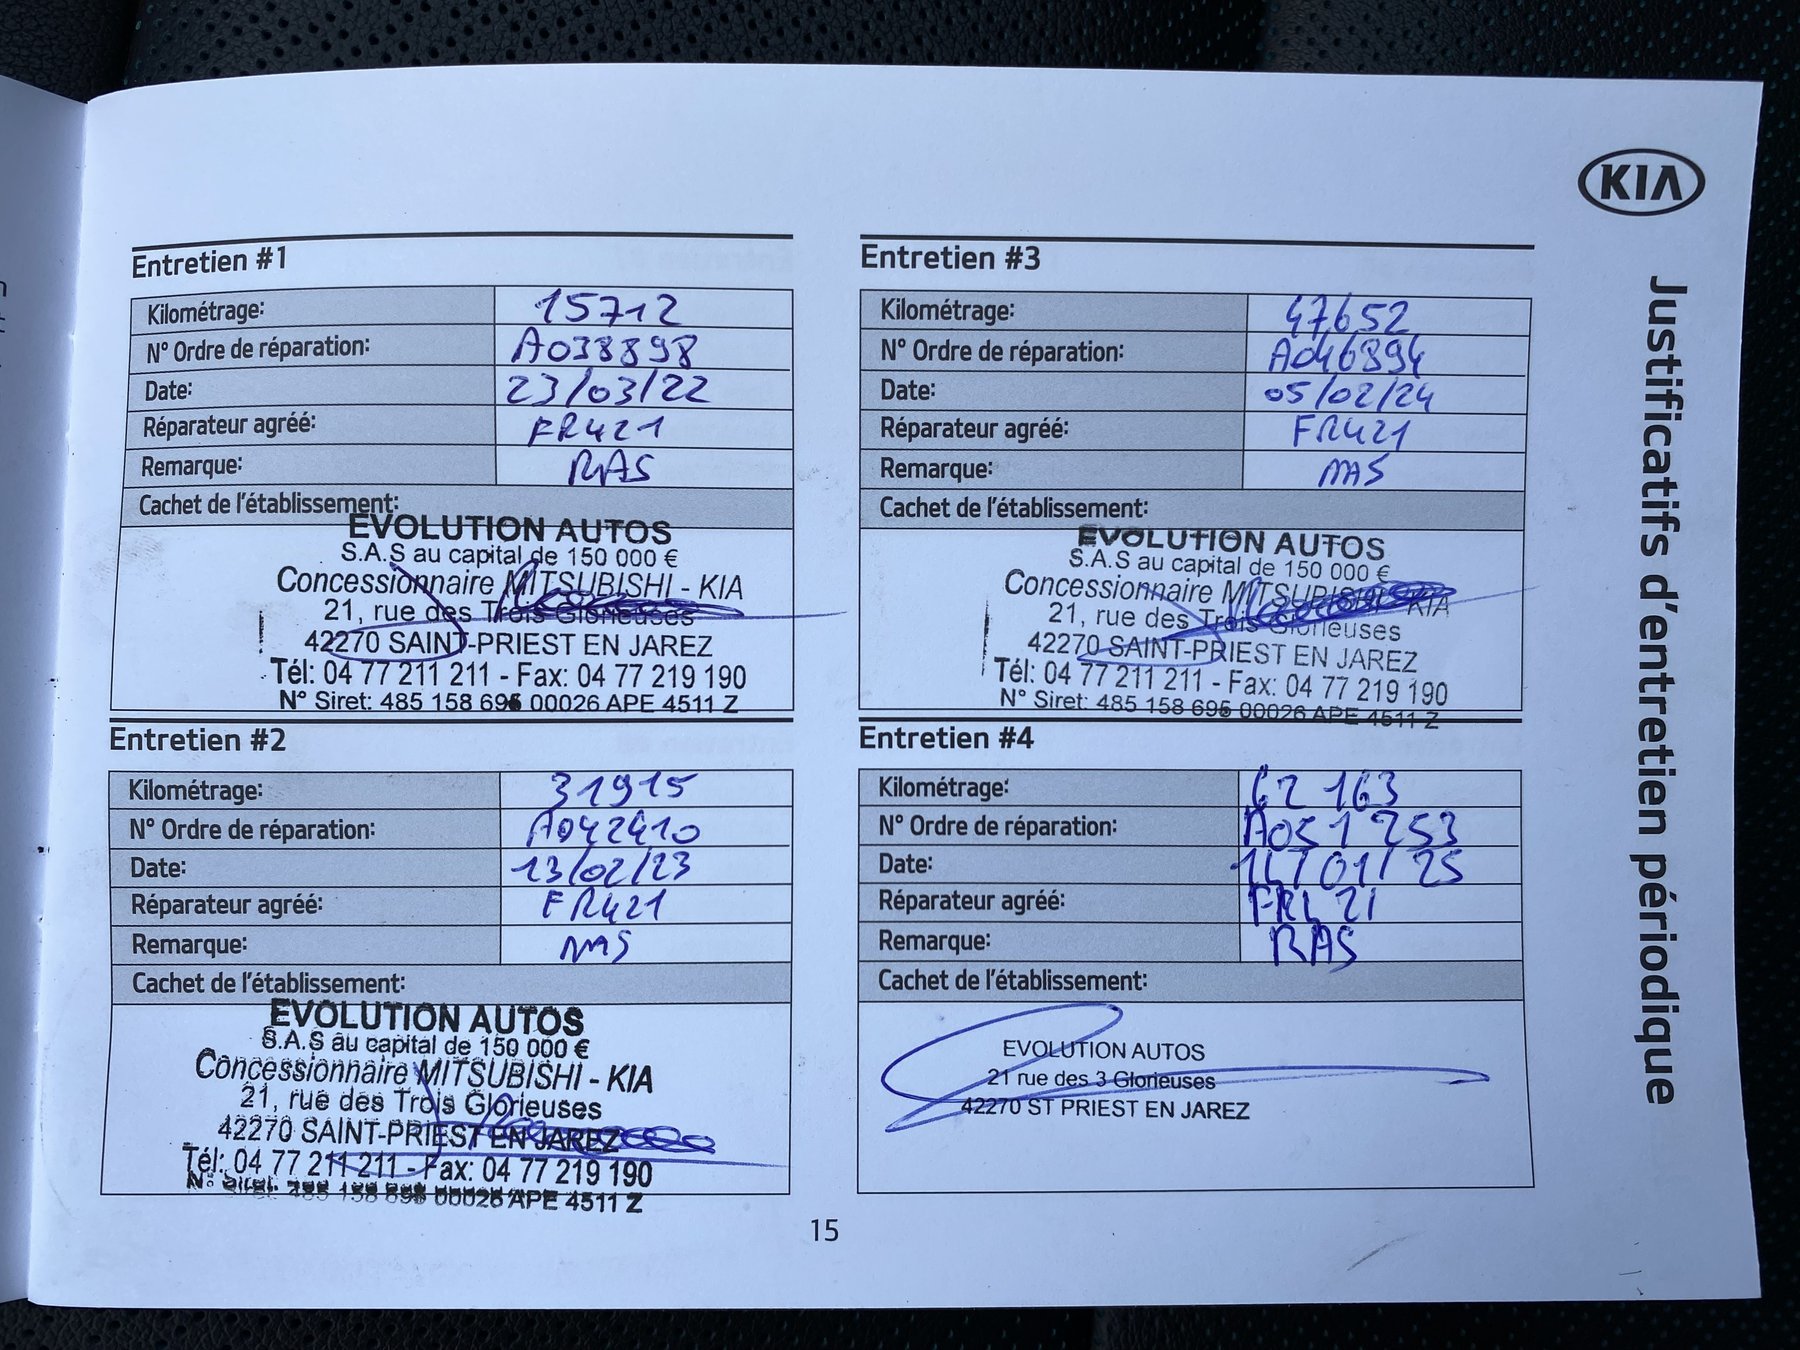 KIA
Justificatifs d'entretien périodique
Entretien #1
Kilométrage: 15712
N° Ordre de réparation: A038898
Date: 23/03/22
Réparateur agréé: FR421
Remarque: RAS
Cachet de l'établissement:
EVOLUTION AUTOS
S.A.S au capital de 150 000 €
Concessionnaire MITSUBISHI - KIA
21, rue des Trois Glorieuses
42270 SAINT-PRIEST EN JAREZ
Tél: 04 77 211 211 - Fax: 04 77 219 190
N° Siret: 485 158 695 00026 APE 4511 Z
Entretien #2
Kilométrage: 31915
N° Ordre de réparation: A042410
Date: 13/02/23
Réparateur agréé: FR421
Remarque: RAS
Cachet de l'établissement:
EVOLUTION AUTOS
S.A.S au capital de 150 000 €
Concessionnaire MITSUBISHI - KIA
21, rue des Trois Glorieuses
42270 SAINT-PRIEST EN JAREZ
Tél: 04 77 211 211 - Fax: 04 77 219 190
N° Siret: 485 158 695 00026 APE 4511 Z
Entretien #3
Kilométrage: 47652
N° Ordre de réparation: A046894
Date: 05/02/24
Réparateur agréé: FR421
Remarque: RAS
Cachet de l'établissement:
EVOLUTION AUTOS
S.A.S au capital de 150 000 €
Concessionnaire MITSUBISHI - KIA
21, rue des Trois Glorieuses
42270 SAINT-PRIEST EN JAREZ
Tél: 04 77 211 211 - Fax: 04 77 219 190
N° Siret: 485 158 695 00026 APE 4511 Z
Entretien #4
Kilométrage: 62 163
N° Ordre de réparation: A051 253
Date: /01/25
Réparateur agréé: FR421
Remarque: RAS
Cachet de l'établissement:
EVOLUTION AUTOS
21 rue des 3 Glorieuses
42270 ST PRIEST EN JAREZ
15